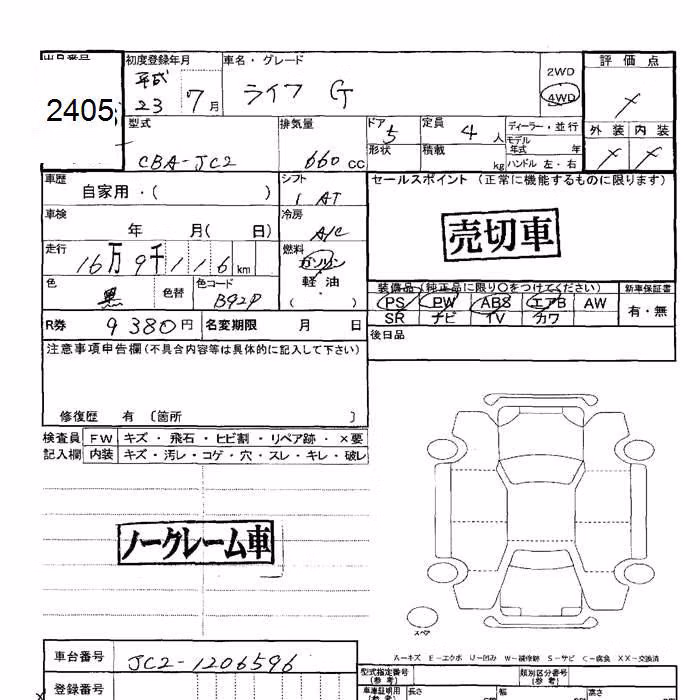 出品番号
2405
初度登録年月
平成
23 7月
車名・グレード
ライフ G
2WD
4WD
評価点
外装 内装
型式
CBA-JC2
排気量
660 CC
ドア 5
形状
定員 4 人
積載 kg
ディーラー・並行
モデル年式 年
ハンドル 左・右
車歴
自家用・( )
シフト
1 AT
セールスポイント (正常に機能するものに限ります)
車検
年 月( 日)
冷房
A/C
売切車
走行
16万9千116 km
燃料
ガソリン
軽油
( )
色
黒
色替
色コード
B92P
装備品(純正品に限り○をつけてください)
新車保証書
PS PW ABS エアB AW
SR ナビ TV カワ
有・無
R券 9380円 名変期限 月 日
後日品
注意事項申告欄(不具合内容等は具体的に記入して下さい)
修復歴 有 〔箇所 〕
検査員 FW キズ・飛石・ヒビ割・リペア跡・×要
記入欄 内装 キズ・汚レ・コゲ・穴・スレ・キレ・破レ
ノークレーム車
スペア
A-キズ E-エクボ U-凹み W-補修跡 S-サビ C-腐食 XX-交換済
車台番号 JC2-1206596
型式指定番号
(参考)
類別区分番号
(参考)
登録番号
車庫証明用
(参考)
長さ
幅
高さ